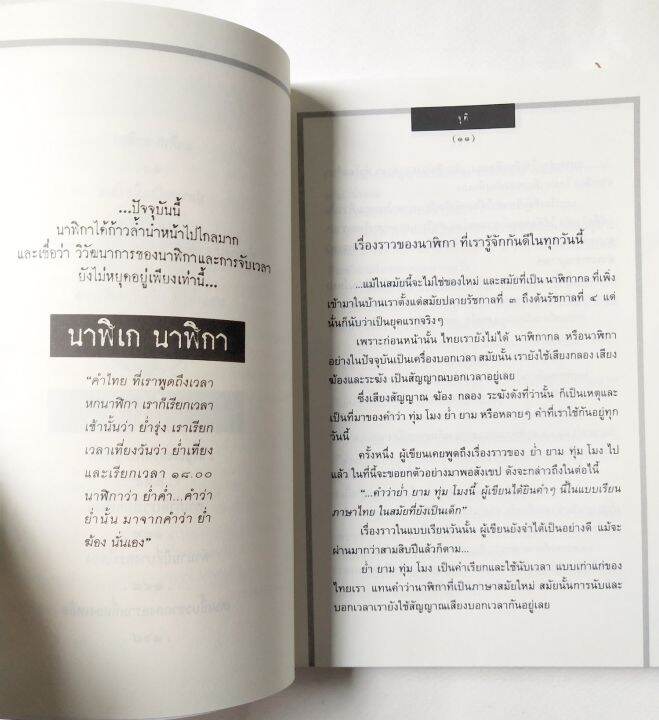 ...ปัจจุบันนี้
นาฬิกาได้ก้าวล้ำนำหน้าไปไกลมาก
และเชื่อว่า วิวัฒนาการของนาฬิกาและการจับเวลา
ยังไม่หยุดอยู่เพียงเท่านี้...
นาฬิเก นาฬิกา
“คำไทย ที่เราพูดถึงเวลา
หกนาฬิกา เราก็เรียกเวลา
เช้านั้นว่า ย่ำรุ่ง เราเรียก
เวลาเที่ยงวันว่า ย่ำเที่ยง
และเรียกเวลา ๑๘.๐๐
นาฬิกาว่า ย่ำค่ำ...คำว่า
ย่ำนั้น มาจากคำว่า ย่ำ
ฆ้อง นั่นเอง”
จุติ
(๑๑)
เรื่องราวของนาฬิกา ที่เรารู้จักกันดีในทุกวันนี้
...แม้ในสมัยนี้จะไม่ใช่ของใหม่ และสมัยที่เป็น นาฬิกากล ที่เพิ่ง
เข้ามาในบ้านเราตั้งแต่สมัยปลายรัชกาลที่ ๓ ถึงต้นรัชกาลที่ ๔ แต่
นั่นก็นับว่าเป็นยุคแรกจริงๆ
เพราะก่อนหน้านั้น ไทยเรายังไม่ได้ นาฬิกากล หรือนาฬิกา
อย่างในปัจจุบันเป็นเครื่องบอกเวลา สมัยนั้น เรายังใช้เสียงกลอง เสียง
ฆ้องและระฆัง เป็นสัญญาณบอกเวลาอยู่เลย
ซึ่งเสียงสัญญาณ ฆ้อง กลอง ระฆังดังที่ว่านั้น ก็เป็นเหตุและ
เป็นที่มาของคำว่า ทุ่ม โมง ย่ำ ยาม หรือหลายๆ คำที่เราใช้กันอยู่ทุก
วันนี้
ครั้งหนึ่ง ผู้เขียนเคยพูดถึงเรื่องราวของ ย่ำ ยาม ทุ่ม โมง ไป
แล้ว ในที่นี้จะขอยกตัวอย่างมาพอสังเขป ดังจะกล่าวถึงในต่อไปนี้
“...คำว่าย่ำ ยาม ทุ่ม โมงนี้ ผู้เขียนได้ยินคำๆ นี้ในแบบเรียน
ภาษาไทย ในสมัยที่ยังเป็นเด็ก”
เรื่องราวในแบบเรียนวันนั้น ผู้เขียนยังจำได้เป็นอย่างดี แม้จะ
ผ่านมากว่าสามสิบปีแล้วก็ตาม...
ย่ำ ยาม ทุ่ม โมง เป็นคำเรียกและใช้นับเวลา แบบเก่าแก่ของ
ไทยเรา แทนคำว่านาฬิกาที่เป็นภาษาสมัยใหม่ สมัยนั้นการนับและ
บอกเวลาเรายังใช้สัญญาณเสียงบอกเวลากันอยู่เลย